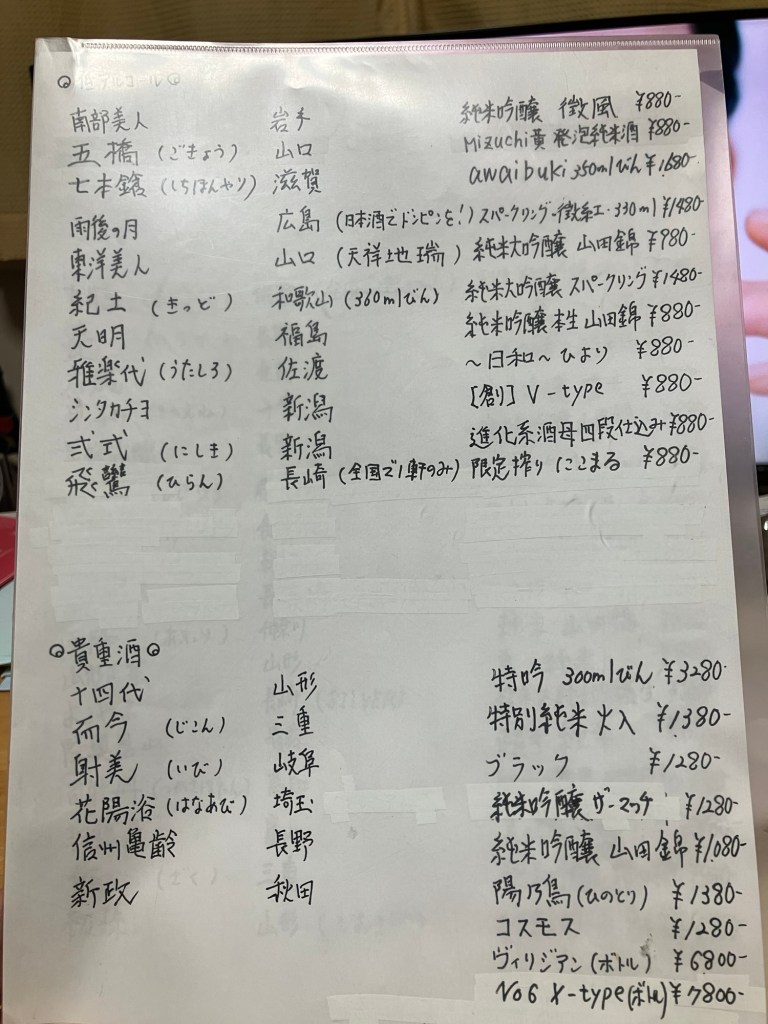 低アルコール
南部美人 岩手 純米吟醸 微風 ¥880-
五橋 (ごきょう) 山口 Mizuchi黄 発泡純米酒 ¥880-
七本鎗 (しちほんやり) 滋賀 awaibuki 350mlびん ¥1,680-
雨後の月 広島 (日本酒でドンピンを!) スパークリング・微紅・330ml ¥1480-
東洋美人 山口 (天祥地瑞) 純米大吟醸 山田錦 ¥980-
紀土 (きっど) 和歌山 (360mlびん) 純米大吟醸 スパークリング ¥1480-
天明 福島 純米吟醸 本生 山田錦 ¥880-
雅楽代 (うたしろ) 佐渡 ~日和~ ひより ¥880-
シンタカチヨ 新潟 [創] V-type ¥880-
弌式 (にしき) 新潟 進化系酒母四段仕込み ¥880-
飛鸞 (ひらん) 長崎 (全国で1軒のみ) 限定搾り にこまる ¥880-
貴重酒
十四代 山形 特吟 300mlびん ¥3280-
而今 (じこん) 三重 特別純米 火入 ¥1380-
射美 (いび) 岐阜 ブラック ¥1280-
花陽浴 (はなあび) 埼玉 純米吟醸 ザ・マッチ ¥1280-
信州亀齢 長野 純米吟醸 山田錦 ¥1,080-
新政 秋田 陽乃鳥 (ひのとり) ¥1380-
コスモス ¥1280-
ヴィリジアン (ボトル) ¥6800-
No6 X-type (ボトル) ¥7800-